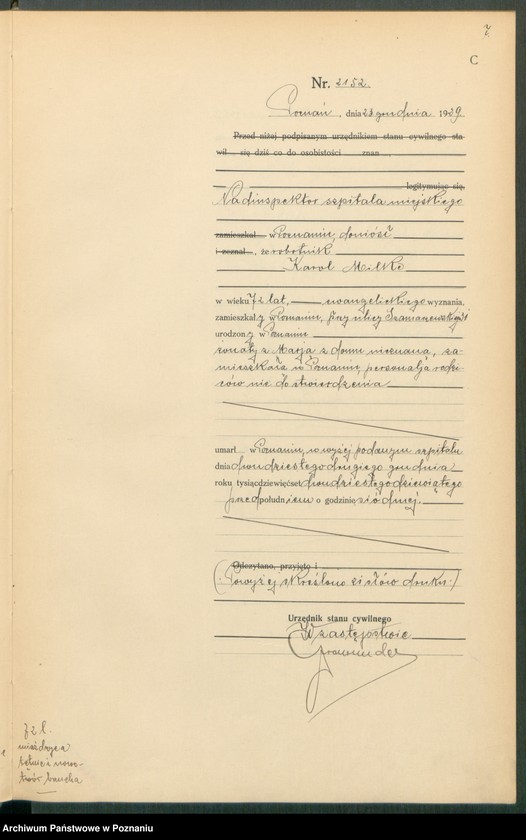 7.
C
Nr. 2152.
Poznań, dnia 23 grudnia 1929
Przed niżej podpisanym urzędnikiem stanu cywilnego sta-
wił się dziś co do osobistości znan
legitymując się,
Nadinspektor szpitala miejskiego
zamieszkał w Poznaniu, doniósł
i zeznał, że robotnik
Karol Milke
w wieku 72 lat, ewangelickiego wyznania,
zamieszkały w Poznaniu, przy ulicy
urodzony w Poznaniu
żonaty z Marją z domu nieznana, za-
mieszkała w Poznaniu, personalja rodzi-
ców nie do stwierdzenia
umarł w Poznaniu, w wyżej podanym szpitalu
dnia dwudziestego drugiego grudnia
roku tysiącdziewięćset dwudziestego dziewiątego
przedpołudniem o godzinie siódmej.
Odczytano, przyjęto i
(: Powyżej skreślono 21 słów druku :)
Urzędnik stanu cywilnego
W zastępstwie
72 l.
miażdżyca
tętnic i nowo-
twór brzucha
Archiwum Państwowe w Poznaniu